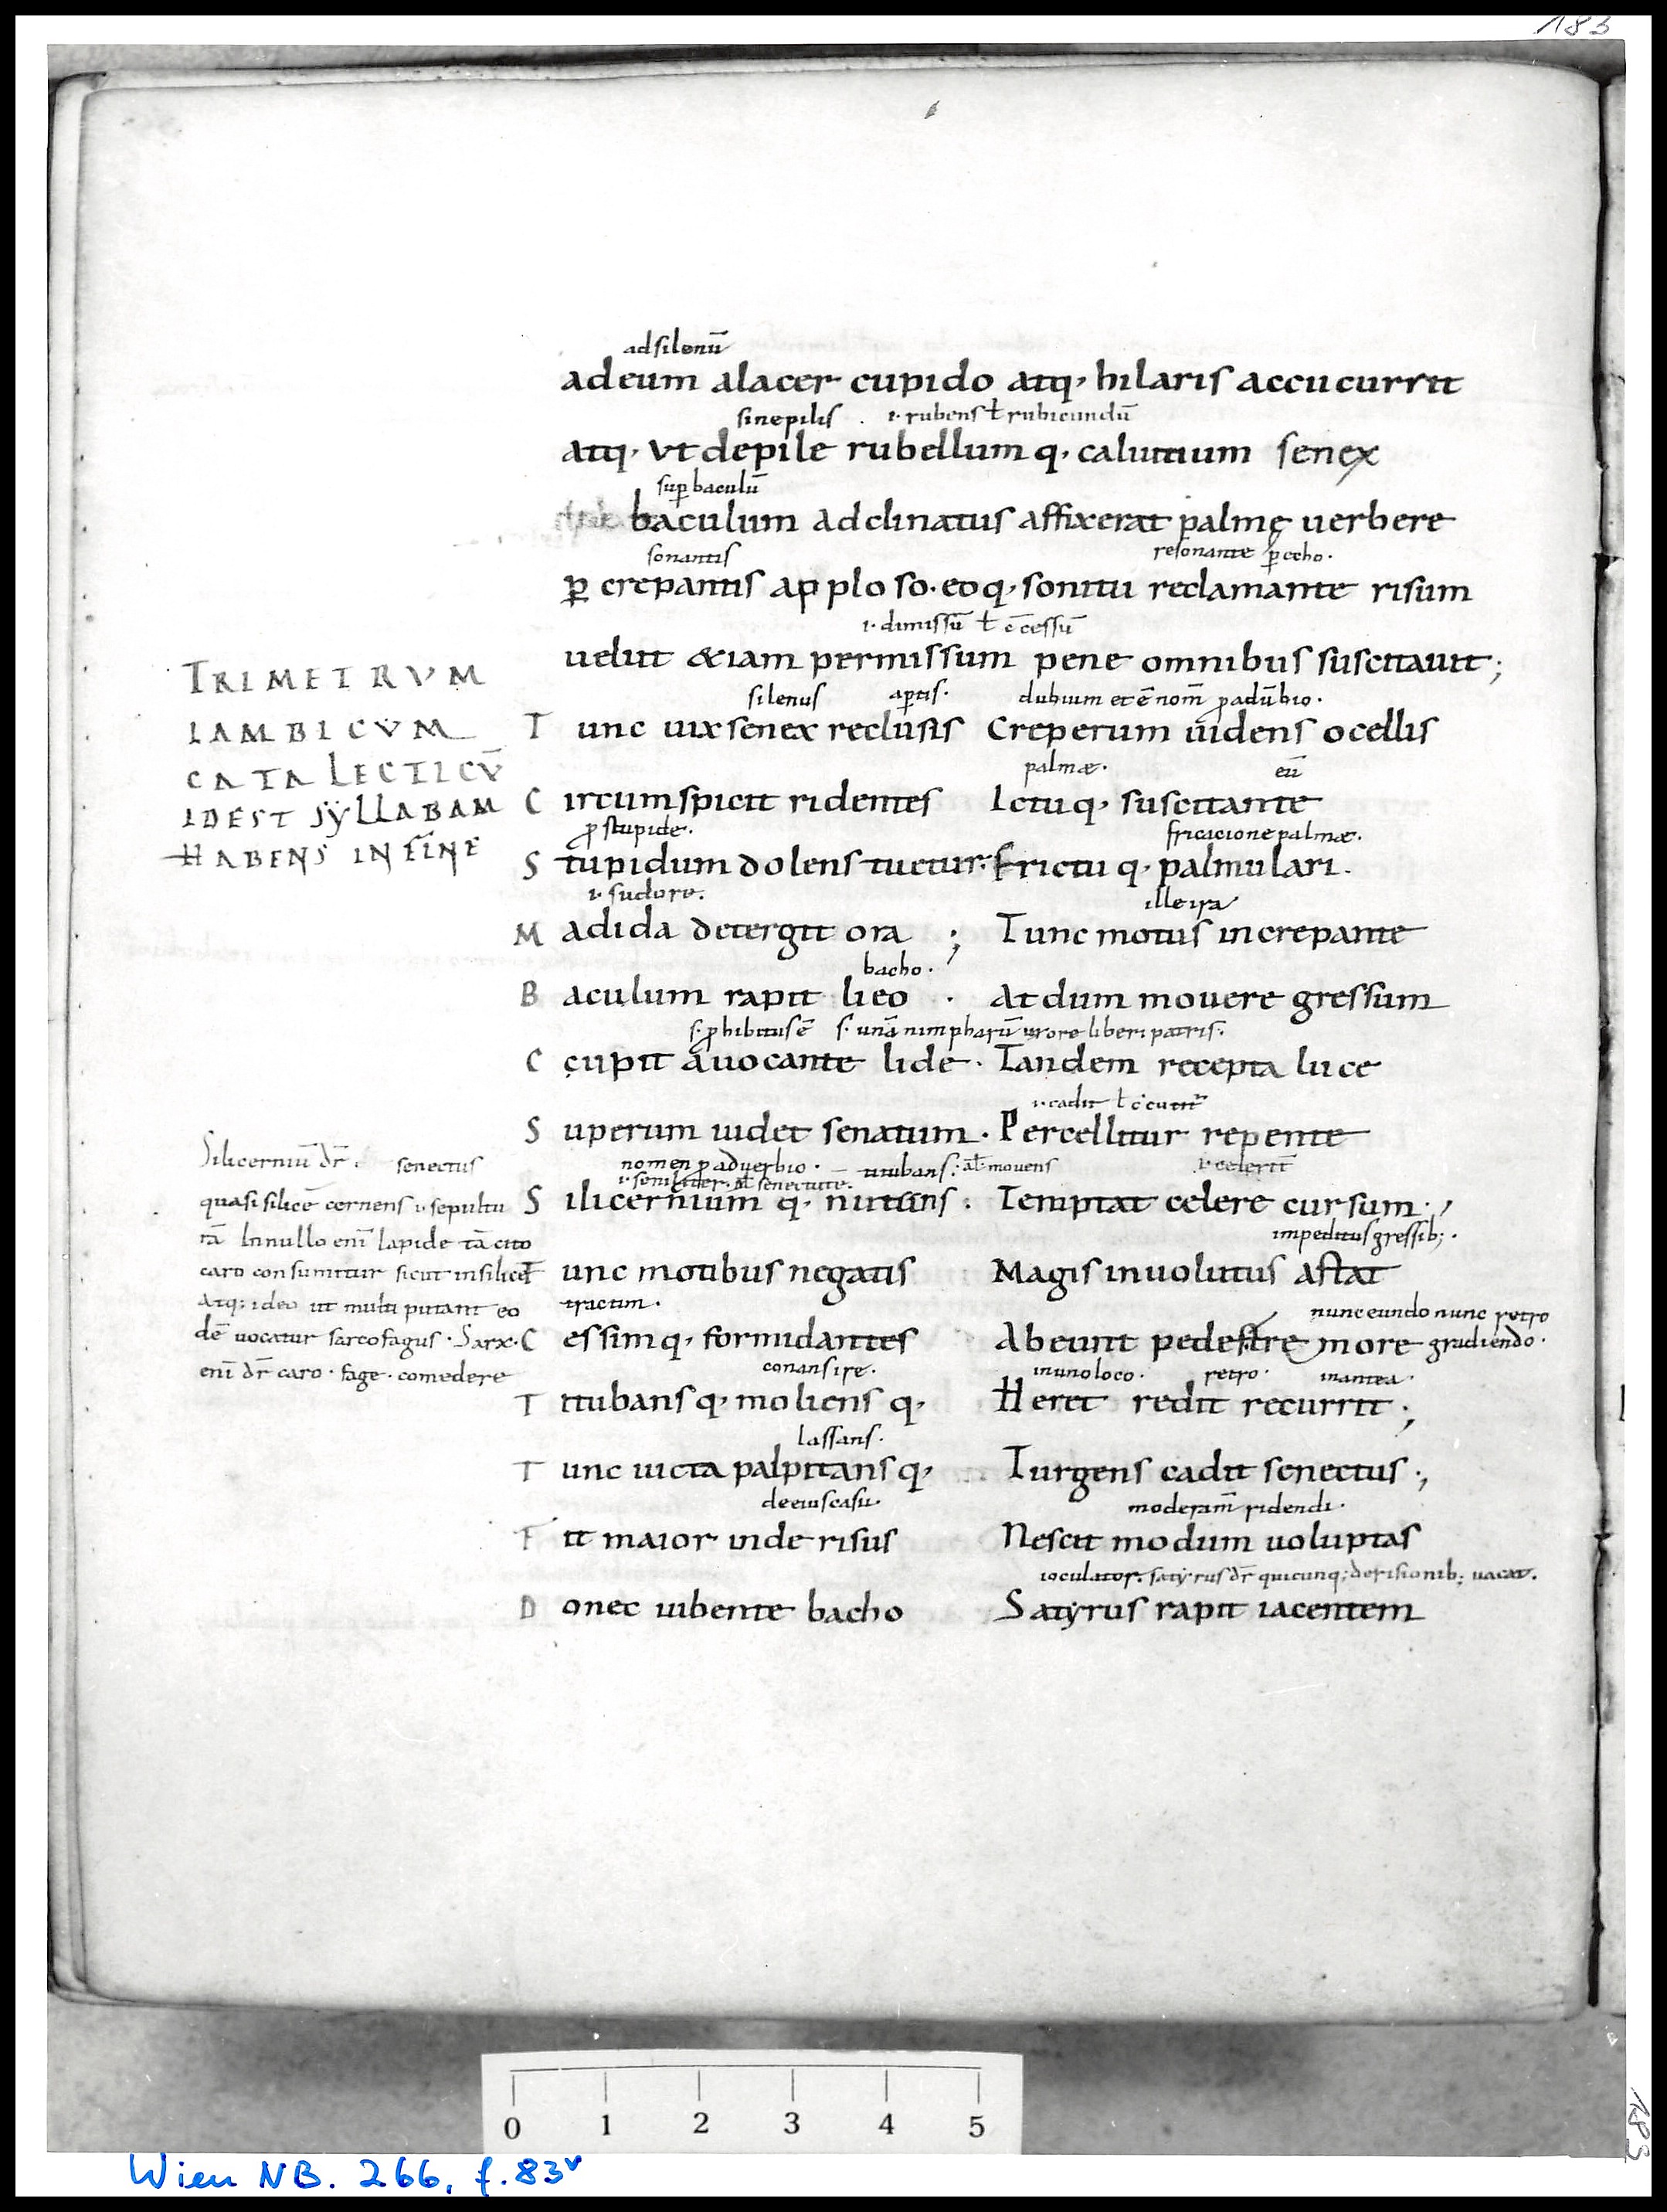 183
ad silenū
ad eum alacer cupido atq, hilaris accucurrit
sine pilis . i. rubens ł rubicundū
atq, ut depile rubellum q, caluitium senex
sup baculū
baculum adclinatus affixerat palmę uerbere
sonantis resonante p echo.
p crepantis applo so. eoq, sonitu reclamante risum
i. dimissū ł c̄cessū
uelut &iam permissum pene omnibus suscitauit;
TRIMETRUM
IAMBICUM
CATALECTICŪ
IDEST SYLLABAM
HABENS IN FINE
silenus aptis. dubium et ē nom̄ p aduƀio.
Tunc uix senex reclusis Creperum uidens ocellis
palmæ. eū
Circumspicit ridentes Ictuq, suscitante
p stupide. fricacione palmæ.
Stupidum dolens tuetur. frictu q, palmulari.
i. sudore. ille ira
Madida detergit ora ; Tunc motus increpante
bacho.
Baculum rapit lieo . At dum mouere gressum
s. phibitus ē s. unā nimpharū uxore liberi patris.
Ccupit auocante lide. Tandem recepta luce
i. cadit ł
Superum uidet senatum. Percellitur repente
nomen p aduerbio. titubans: al. mouens i. celerit̄
i. seniliter. al senectute.
Silicernium q, nutans: Temptat celere cursum.,
impeditus gressib;.
Tunc motibus negatis Magis inuolutus astat
tractim. nunc eundo nunc retro
Cessimq, formidantes Abeunt pedestre more gradiendo.
conans ire. in uno loco. retro. in antea.
Titubansq, moliensq, Heret redit recurrit;
lassans.
Tunc uicta palpitansq, Turgens cadit senectus.,
de eius casu. moderam̄ ridendi.
Fit maior inde risus Nescit modum uoluptas
ioculator. satyrus dr̄ quicunq; derisionib; uacat.
Donec iubente bacho Satyrus rapit iacentem
Silicerniū dr̄. senectus
quasi silicē cernens i. sepultu
rā In nullo enī lapide tā cito
caro consumitur sicut in silice
Atq; ideo ut multi putant eo
dē uocatur sarcofagus. Sarx.
enī dr̄ caro. fage. comedere
0 1 2 3 4 5
Wien NB. 266, f. 83v
183